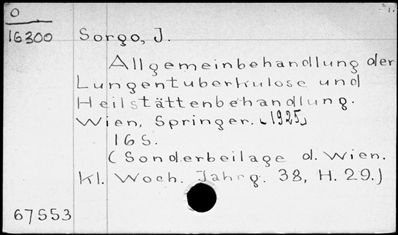 O
16300 Sorgo, J.
Allgemeinbehandlung der
Lungentuberkulose und
Heilstättenbehandlung.
Wien, Springer. [1925]
16 S.
(Sonderbeilage d. Wien.
kl. Woch. Jahrg. 38, H. 29.)
67553